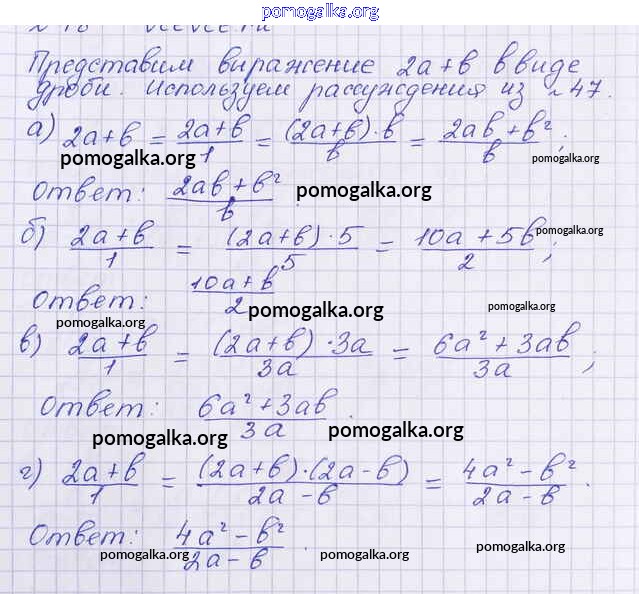 pomogalka.org
Представим выражение 2a+b в виде
дроби. Используем рассуждения из №47.
а) 2a+b = (2a+b)/1 = ((2a+b)·b)/b = (2ab+b²)/b;
pomogalka.org pomogalka.org
Ответ: (2ab+b²)/b. pomogalka.org
б) (2a+b)/1 = ((2a+b)·5)/5 = (10a+5b)/2; pomogalka.org
Ответ: (10a+b)/2 pomogalka.org pomogalka.org
pomogalka.org
в) (2a+b)/1 = ((2a+b)·3a)/3a = (6a²+3ab)/3a;
Ответ: (6a²+3ab)/3a.
pomogalka.org pomogalka.org
г) (2a+b)/1 = ((2a+b)·(2a-b))/(2a-b) = (4a²-b²)/(2a-b).
Ответ: (4a²-b²)/(2a-b).
pomogalka.org pomogalka.org pomogalka.org